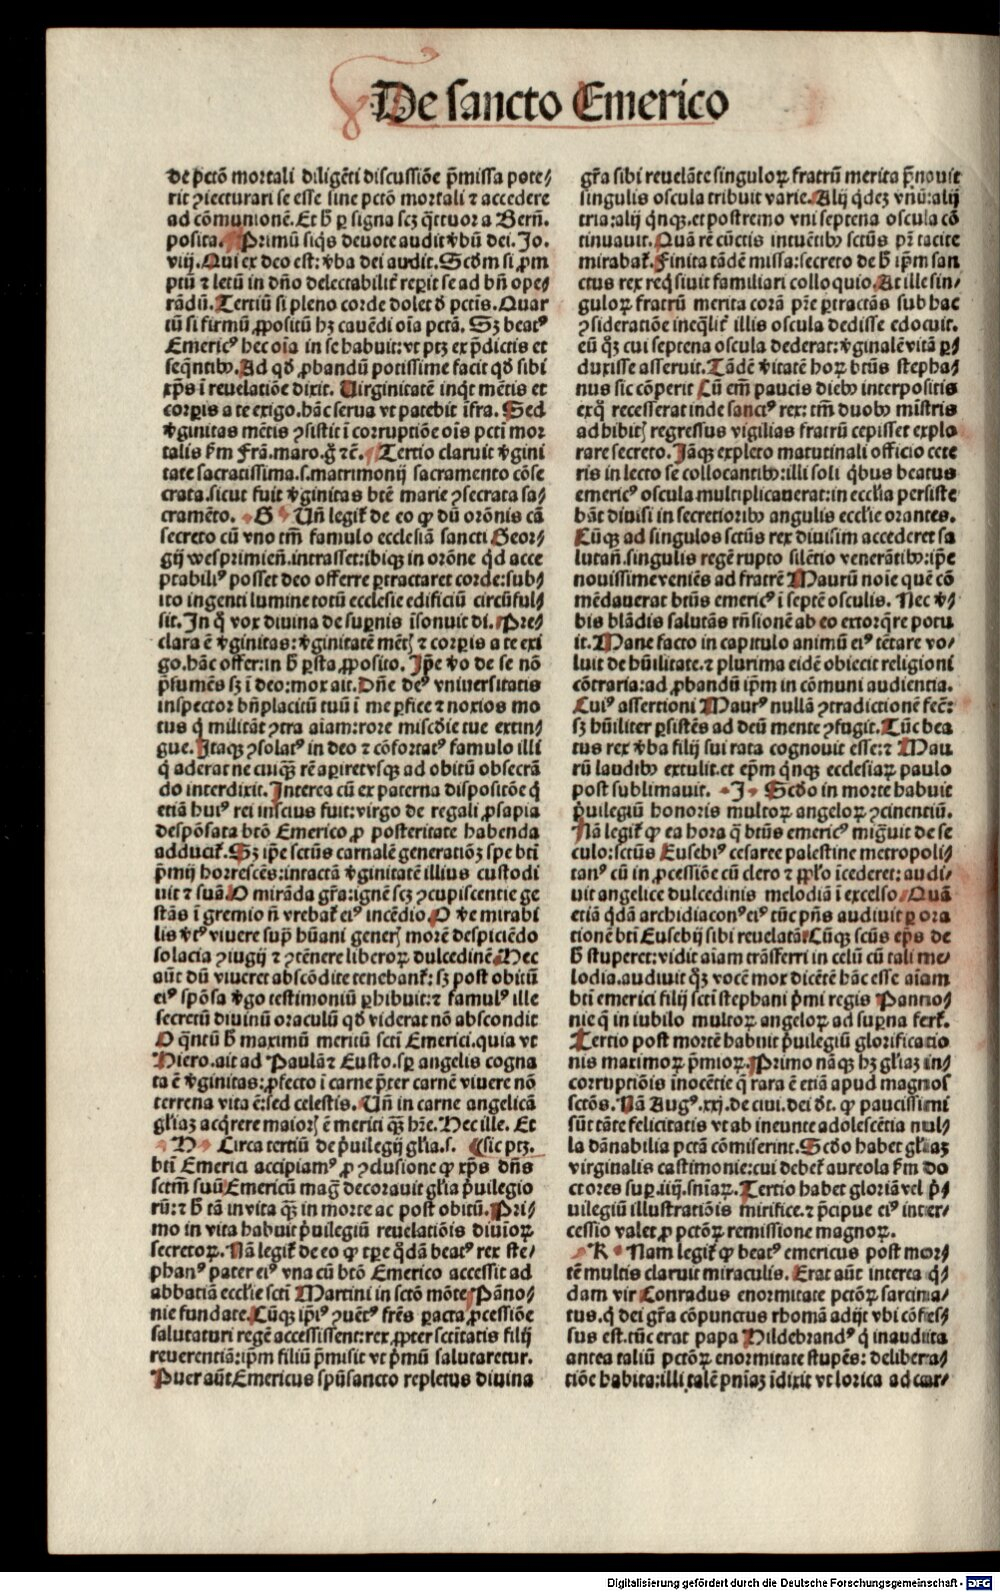 De sancto Emerico
de pctō mortali diligēti discussiōe p̄missa pote⸗
rit ꝯiecturari se esse sine pctō mortali ⁊ accedere
ad cōmunionē. Et h̄ ꝑ signa scꝫ q̄ttuor a Bern̄.
posita. Primū siq̄s deuote audit v̄bū dei. Jo.
viij. Qui ex deo est: v̄ba dei audit. Scd̄m si ꝓm
ptū ⁊ letū in dn̄o delectabilit̉ reꝑit se ad bn̄ ope⸗
rādū. Tertiū si pleno corde dolet d̄ pctis. Quar
tū si firmū ꝓpositū hꝫ cauēdi oīa pctā. Sꝫ beatꝰ
Emericꝰ hec oīa in se habuit: vt ptꝫ ex p̄dictis et
seq̄ntibꝰ. Ad qd̄ ꝓbandū potissime facit qd̄ sibi
xp̄s ī reuelatiōe dixit. Uirginitatē inq̄t mētis et
corꝑis a te exigo. hāc serua vt patebit īfra. Sed
v̄ginitas mētis ꝯsistit ī corruptiōe oīs pcti mor
talis fm̄ Frā. maro. ḡ ⁊c̄. Tertio claruit v̄gini
tate sacratissima. s. matrimonij sacramento cōse
crata. sicut fuit v̄ginitas btē marie ꝯsecrata sa⸗
cramēto. G Un̄ legit̉ de eo ꝙ dū orōnis cā
secreto cū vno tm̄ famulo ecclesiā sancti Geor⸗
gij wesprimien̄. intrasset: ibiqꝫ in orōne q̇d acce
ptabiliꝰ posset deo offerre ꝑtractaret corde: sub⸗
ito ingenti lumine totū ecclesie edificiū circūful⸗
sit. In q̊ vox diuina de suꝑnis īsonuit di. Pre⸗
clara ē v̄ginitas: v̄ginitatē mēt̉ ⁊ corꝑis a te exi
go. hāc offer: in h̄ ꝑsta ꝓposito. Ip̄e v̊o de se nō
p̄sumēs sꝫ ī deo: mox ait. Dn̄e deꝰ vniuersitatis
inspector bn̄placitū tuū ī me ꝑfice ⁊ noxios mo
tus q̇ militāt ꝯtra aīam: rore mis̄cdie tue extin⸗
gue. Itaqꝫ ꝯsolatꝰ in deo ⁊ cōfortatꝰ famulo illi
q̇ aderat ne cuiq̄ꝫ rē aꝑiret vsqꝫ ad obitū obsecrā
do interdixit. Interea cū ex paterna dispositōe q̇
etiā huiꝰ rei inscius fuit: virgo de regali ꝓsapia
despōsata btō Emerico ꝓ posteritate habenda
adducit̉. Sꝫ ip̄e sctūs carnalē generatiōꝫ spe bti
p̄mij horrescēs: intactā v̄ginitatē illius custodi
uit ⁊ suā. O mirāda gr̄a: ignē scꝫ ꝯcupiscentie ge
stās ī gremio n̄ vrebat̉ eiꝰ incēdio. O v̊e mirabi
lis v̊tꝰ viuere sup̄ hūani gener̉ morē despiciēdo
solacia ꝯiugij ⁊ ꝯtēnere liberoꝝ dulcedinē. Hec
aūt dū viueret abscōdite tenebant̉: sꝫ post obitū
eiꝰ spōsa v̄go testimoniū ꝑhibuit: ⁊ famulꝰ ille
secretū diuinū oraculū qd̄ viderat nō abscondit
O q̄ntū h̄ maximū meritū scti Emerici. quia vt
Hiero. ait ad Paulā ⁊ Eusto. sꝑ angelis cogna
ta ē v̄ginitas: ꝓfecto ī carne p̄ter carnē viuere nō
terrena vita ē: sed celestis. Un̄ in carne angelicā
gl̄iaꝫ acq̄rere maior̉ ē meriti q̄ꝫ hr̄e. Hec ille. Et
H Circa tertiū de p̊uilegij gl̄ia. s. sic ptꝫ.
bti Emerici accipiamꝰ ꝓ ꝯclusione ꝙ xp̄s dn̄s
sctm̄ suū Emericū mag̊ decorauit gl̄ia p̊uilegio
rū: ⁊ h̄ tā in vita q̄ꝫ in morte ac post obitū. Pri⸗
mo in vita habuit p̊uilegiū reuelatiōis diuīoꝝ
secretoꝝ. Nā legit̉ de eo ꝙ tꝑe q̊dā beatꝰ rex ste⸗
phanꝰ pater eiꝰ vna cū btō Emerico accessit ad
abbatiā ecclie scti Martini in sctō mōte Pāno⸗
nie fundate. Cūqꝫ ip̄iꝰ ꝯuētꝰ fr̄es ꝑacta ꝓcessiōe
salutaturi regē accessissent: rex ꝓpter sctītatis filij
reuerentiā: ip̄m filiū p̄misit vt p̊mū salutaretur.
Puer aūt Emericus spūsancto repletus diuina
gr̄a sibi reuelāte singuloꝝ fratrū merita p̄nouit
singulis oscula tribuit varie. Alij q̇deꝫ vnū: alij
tria: alij q̇nqꝫ. et postremo vni septena oscula cō
tinuauit. Quā rē cūctis intuētibꝰ sctūs pr̄ tacite
mirabat̉. Finita tādē missa: secreto de h̄ ip̄m san
ctus rex req̇siuit familiari colloquio. At ille sin⸗
guloꝝ fratrū merita corā pr̄e ꝑtractās sub hac
ꝯsideratiōe ineq̄lit̉ illis oscula dedisse edocuit.
eū q̊ꝫ cui septena oscula dederat: v̄ginalē vitā ꝑ⸗
duxisse asseruit. Tādē v̊itatē hoꝝ btūs stepha⸗
nus sic cōperit Cū em̄ paucis diebꝰ interpositis
exq̊ recesserat inde sanctꝰ rex: tm̄ duobꝰ mīstris
adhibit̉ regressus vigilias fratrū cepisset explo
rare secreto. Jāqꝫ expleto matutinali officio cete
ris in lecto se collocantibꝰ: illi soli q̇bus beatus
emericꝰ oscula multiplicauerat: in ecclia persiste
bāt diuisi in secretioribꝰ angulis ecclie orantes.
Cūqꝫ ad singulos sctūs rex diuisim accederet sa
lutan̄. singulis regē rupto silētio venerātibꝰ: ip̄e
nouissime veniēs ad fratrē Maurū noīe quē cō
mēdauerat btūs emericꝰ ī septē osculis. Nec v̊⸗
bis blādis salutās rn̄sionē ab eo extorq̄re potu
it. Mane facto in capitulo animū eiꝰ tētare vo⸗
luit de hūilitate. ⁊ plurima eidē obiecit religioni
cōtraria: ad ꝓbandū ip̄m in cōmuni audientia.
Cuiꝰ assertioni Maurꝰ nullā ꝯtradictionē fec̄:
sꝫ hūiliter ꝑsistēs ad deū mente ꝯfugit. Tūc bea
tus rex v̄ba filij sui rata cognouit esse: ⁊ Mau
rū laudibꝰ extulit. et ep̄m q̇nqꝫ ecclesiaꝝ paulo
post sublimauit. J Scd̄o in morte habuit
p̊uilegiū honoris multoꝝ angeloꝝ ꝯcinentiū.
Nā legit̉ ꝙ ea hora q̄ btūs emericꝰ mig̊uit de se
culo: sctūs Eusebiꝰ cesaree palestine metropoli⸗
tanꝰ cū in ꝓcessiōe cū clero ⁊ ppl̄o īcederet: audi⸗
uit angelice dulcedinis melodiā ī excelso. Quā
etiā q̇dā archidiaconꝰ eiꝰ tūc pn̄s audiuit ꝑ ora
tionē bti Eusebij sibi reuelatā. Cūqꝫ sctūs ep̄s de
h̄ stuperet: vidit aīam trāsferri in celū cū tali me⸗
lodia. audiuit q̊ꝫ vocē mox dicētē hāc esse aīam
bti emerici filij scti stephani p̊mi regis Panno⸗
nie q̄ in iubilo multoꝝ angeloꝝ ad suꝑna fert̉.
Tertio post mortē habuit p̊uilegiū glorificatio
nis maximoꝝ p̄mioꝝ. Primo nāqꝫ hꝫ gl̄iaꝫ in⸗
corruptiōis inocētie q̄ rara ē etiā apud magnos
sctōs. Nā Augꝰ. xxj. de ciui. dei dt̄. ꝙ paucissimi
sūt tāte felicitatis vt ab ineunte adolescētia nul⸗
la dānabilia pctā cōmiserint. Scd̄o habet gl̄iaꝫ
virginalis castimonie: cui debet̉ aureola fm̄ do
ctores suꝑ .iiij. sn̄iaꝝ. Tertio habet gloriā vel p̊⸗
uilegiū illustratiōis mirifice. ⁊ p̄cipue eiꝰ inter⸗
cessio valet ꝓ pctōꝝ remissione magnoꝝ.
K Nam legit̉ ꝙ beatꝰ emericus post mor⸗
tē multis claruit miraculis. Erat aūt interea q̇⸗
dam vir Conradus enormitate pctōꝝ sarcina⸗
tus. q̇ dei gr̄a cōpunctus rhomā adijt vbi cōfes⸗
sus est. tūc erat papa Hildebrandꝰ q̇ inaudita
antea taliū pctōꝝ enormitate stupēs: delibera⸗
tiōe habita: illi talē pn̄iaꝫ īdixit vt lorica ad car⸗
Digitalisierung gefördert durch die Deutsche Forschungsgemeinschaft - DFG